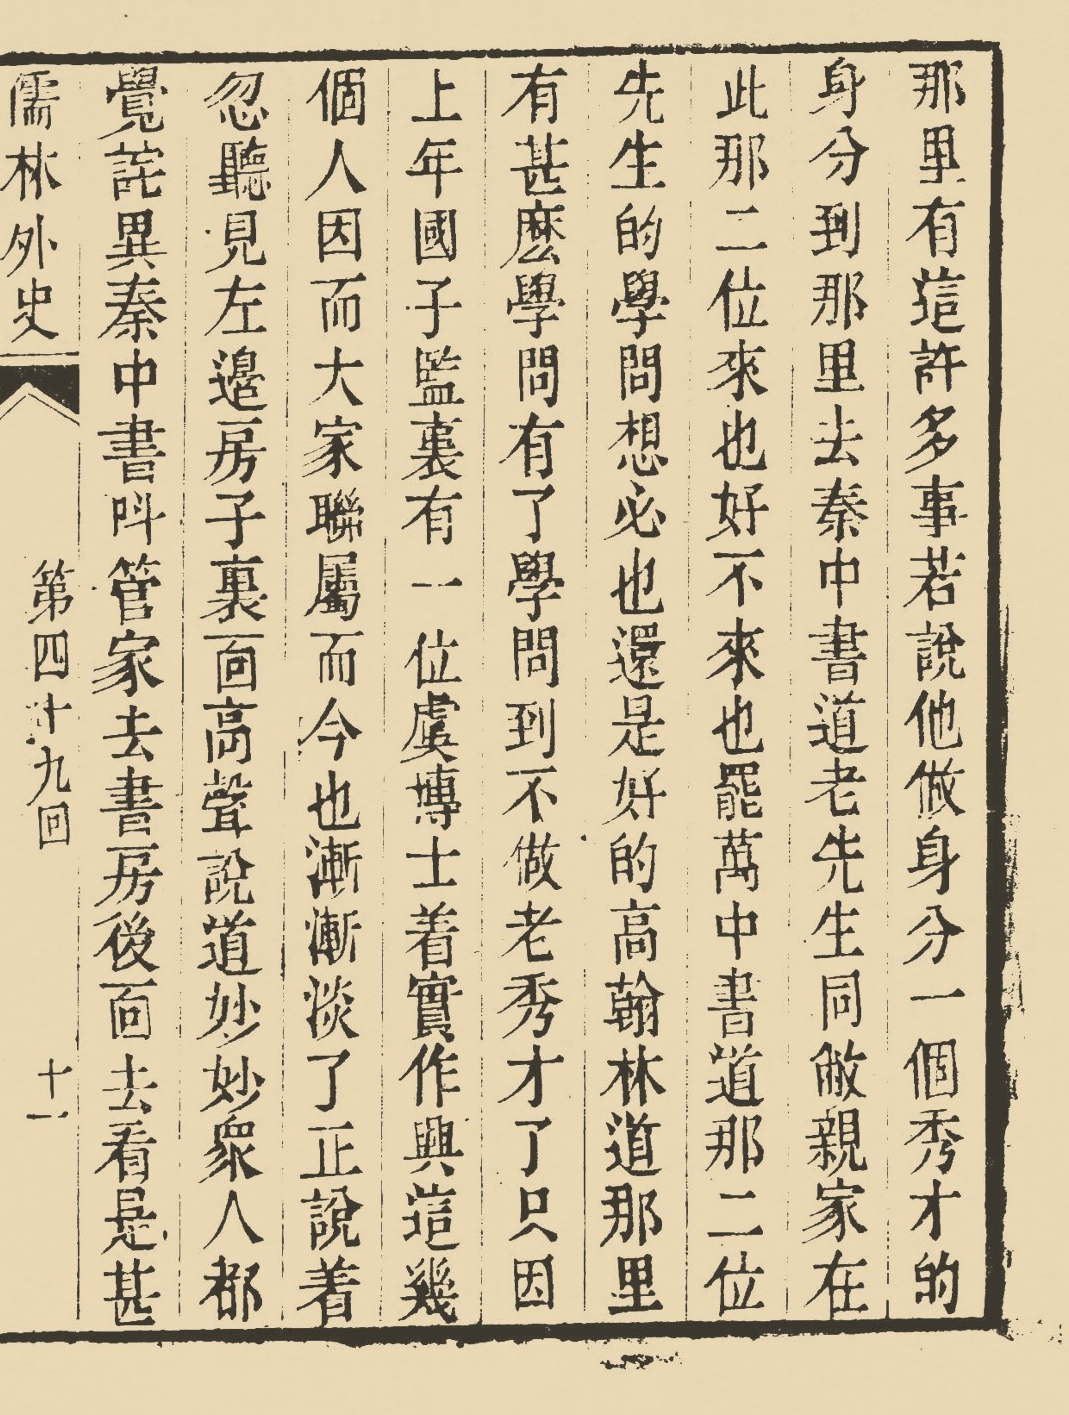 那里有這許多事若說他做身分一個秀才的
身分到那里去秦中書道老先生同敝親家在
此那二位來也好不來也罷萬中書道那二位
先生的學問想必也還是好的高翰林道那里
有甚麽學問有了學問到不做老秀才了只因
上年國子監裏有一位虞博士着實作興這幾
個人因而大家聯屬而今也漸漸淡了正說着
忽聽見左邊房子裏面高聲說道妙妙衆人都
覺詫異秦中書呌管家去書房後面去看是甚
儒林外史
第四十九回
十一